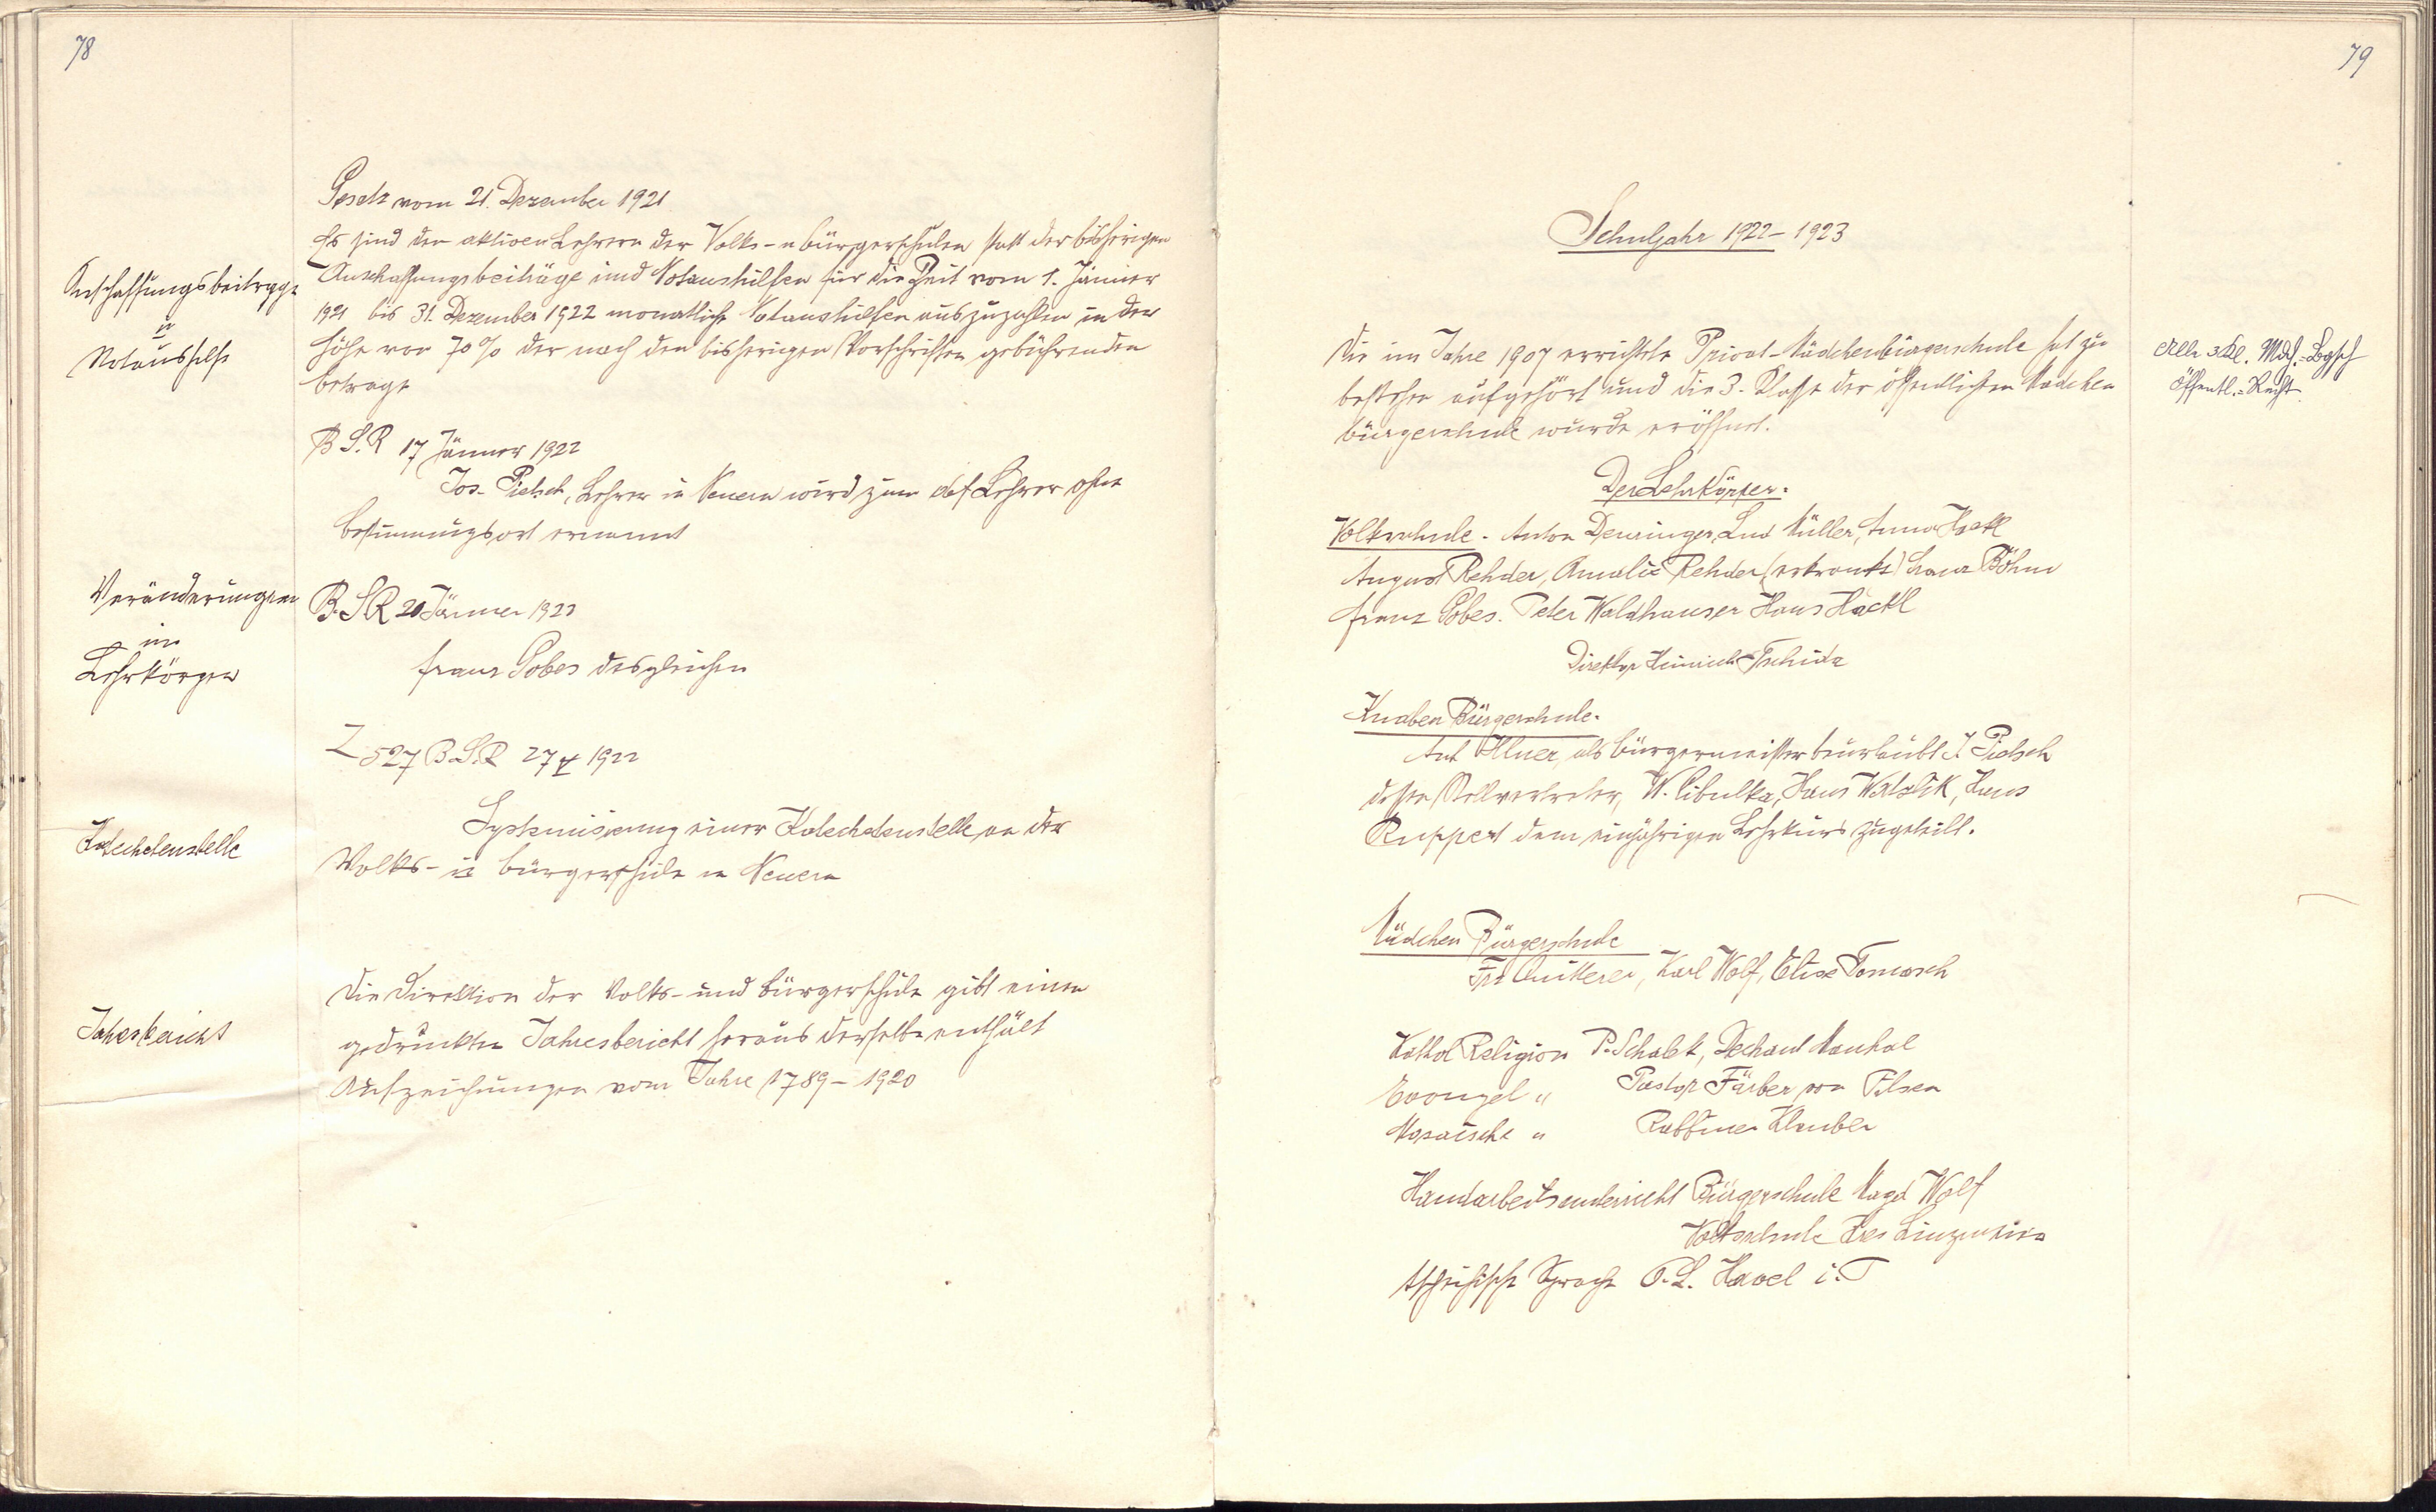 78
Gesetz vom 21. Dezember 1921
Es sind den aktiven Lehrern der Volks- u Bürgerschulen statt der bisherigen
Anschaffungsbeiträge
u
Notaushilfe
Anschaffungsbeiträge und Notaushilfen für die Zeit vom 1. Jänner
1921 bis 31. Dezember 1922 monatliche Notaushilfen auszuzahlen in der
Höhe von 70% der nach den bisherigen Vorschriften gebührenden
Betrage
B S. R 17 Jänner 1922
Jos. Pietsch, Lehrer in Neuern wird zum def Lehrer ohne
Bestimmungsort ernannt
Veränderungen
im
Lehrkörper
B. S. R 20 Jänner 1922
Franz Gobes desgleichen
Z 527 B. S. R 27 1922
Katechetenstelle
Systemisierung einer Katechetenstelle an der
Volks- u Bürgerschule in Neuern
Jahresbericht
Die Direktion der Volks- und Bürgerschule gibt einen
gedruckten Jahresbericht heraus derselbe enthält
Aufzeichungen vom Jahre 1789 – 1920
79
Schuljahr 1922 – 1923
Die im Jahre 1907 errichtete Privat-Mädchenbürgerschule hat zu
bestehen aufgehört und die 3. Klasse der öffentlichen Mädchen
bürgerschule wurde eröffnet.
3. Kl. Mdch.-Bgsch
Öffentl.-Recht
Der Lehrkörper.
Volksschule. Anton Denringer, Lud Müller, Anna Hackl
August Rehder, Amalie Rehder (erkrankt) Franz Böhm
Franz Gobes. Peter Waldhauser Hans Hackl
Direktor Heinrich Tschida
Knaben Bürgerschule.
Ant Illner, als Bürgermeister beurlaubt J. Pietsch
dessen Stellvertreter, W. Cibulka, Hans Watzlik, Hans
Ruppert dem einjährigen Lehrkurs zugeteilt.
Mädchen Bürgerschule
Frz Quitterer, Karl Wolf, Elise Tomasch
Kathol Religion P. Schalek, Dechant Mankal
Evangel " Pastor Färber von Pilsen
Mosaische " Rabbiner Klauber
Handarbeitsunterricht Bürgerschule Magd Wolf
Volksschule
tschechische Sprache O. L. Havel i. T